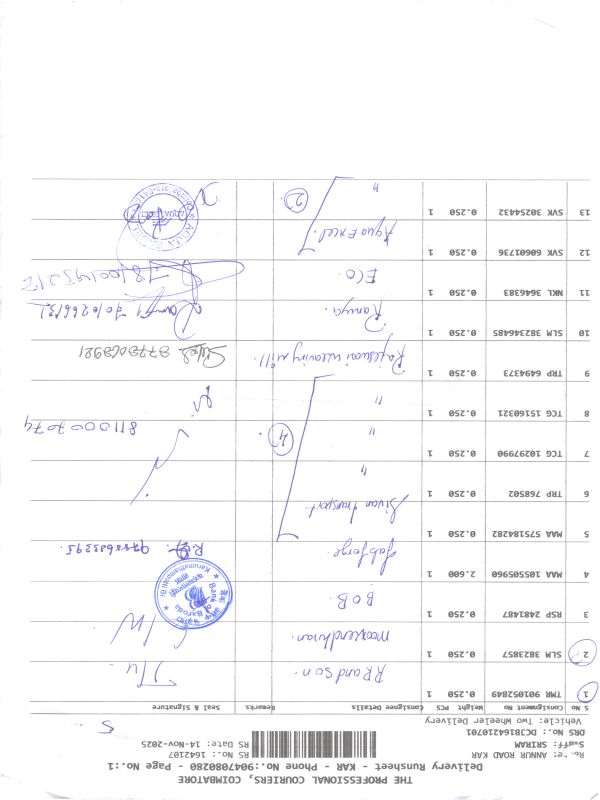 THE PROFESSIONAL COURIERS, COIMBATORE
Delivery Runsheet - KAR - Phone No.:9047080280 - Page No.:1
ANNUR ROAD KAR RS No.: 1642107
Staff: SRIRAM RS Date: 14-Nov-2025
DRS No.: DCJB16420701
Vehicle: Two Wheeler Delivery
S No Consignment No Weight PCS Consignee Details Remarks Seal & Signature
1 TMR 901052849 0.250 1 RR and son.
2 SLM 3823857 0.250 1
3 RSP 2481487 0.250 1 BOB. Bank of Baroda
4 MAA 105505960 2.600 1 Jobforge
5 MAA 575184282 0.250 1 Sivan transport
6 TRP 768502 0.250 1 "
7 TCG 10297990 0.250 1 " 4
8 TCG 15160321 0.250 1 " 8110007074
9 TRP 6494373 0.250 1 Rajeswari weaving mill.
10 SLM 382346485 0.250 1 Ramya.
11 NKL 3646383 0.250 1 ECO.
12 SVK 60601736 0.250 1 Aqua Excel. AQUA EXCEL
13 SVK 30254432 0.250 1 " 2